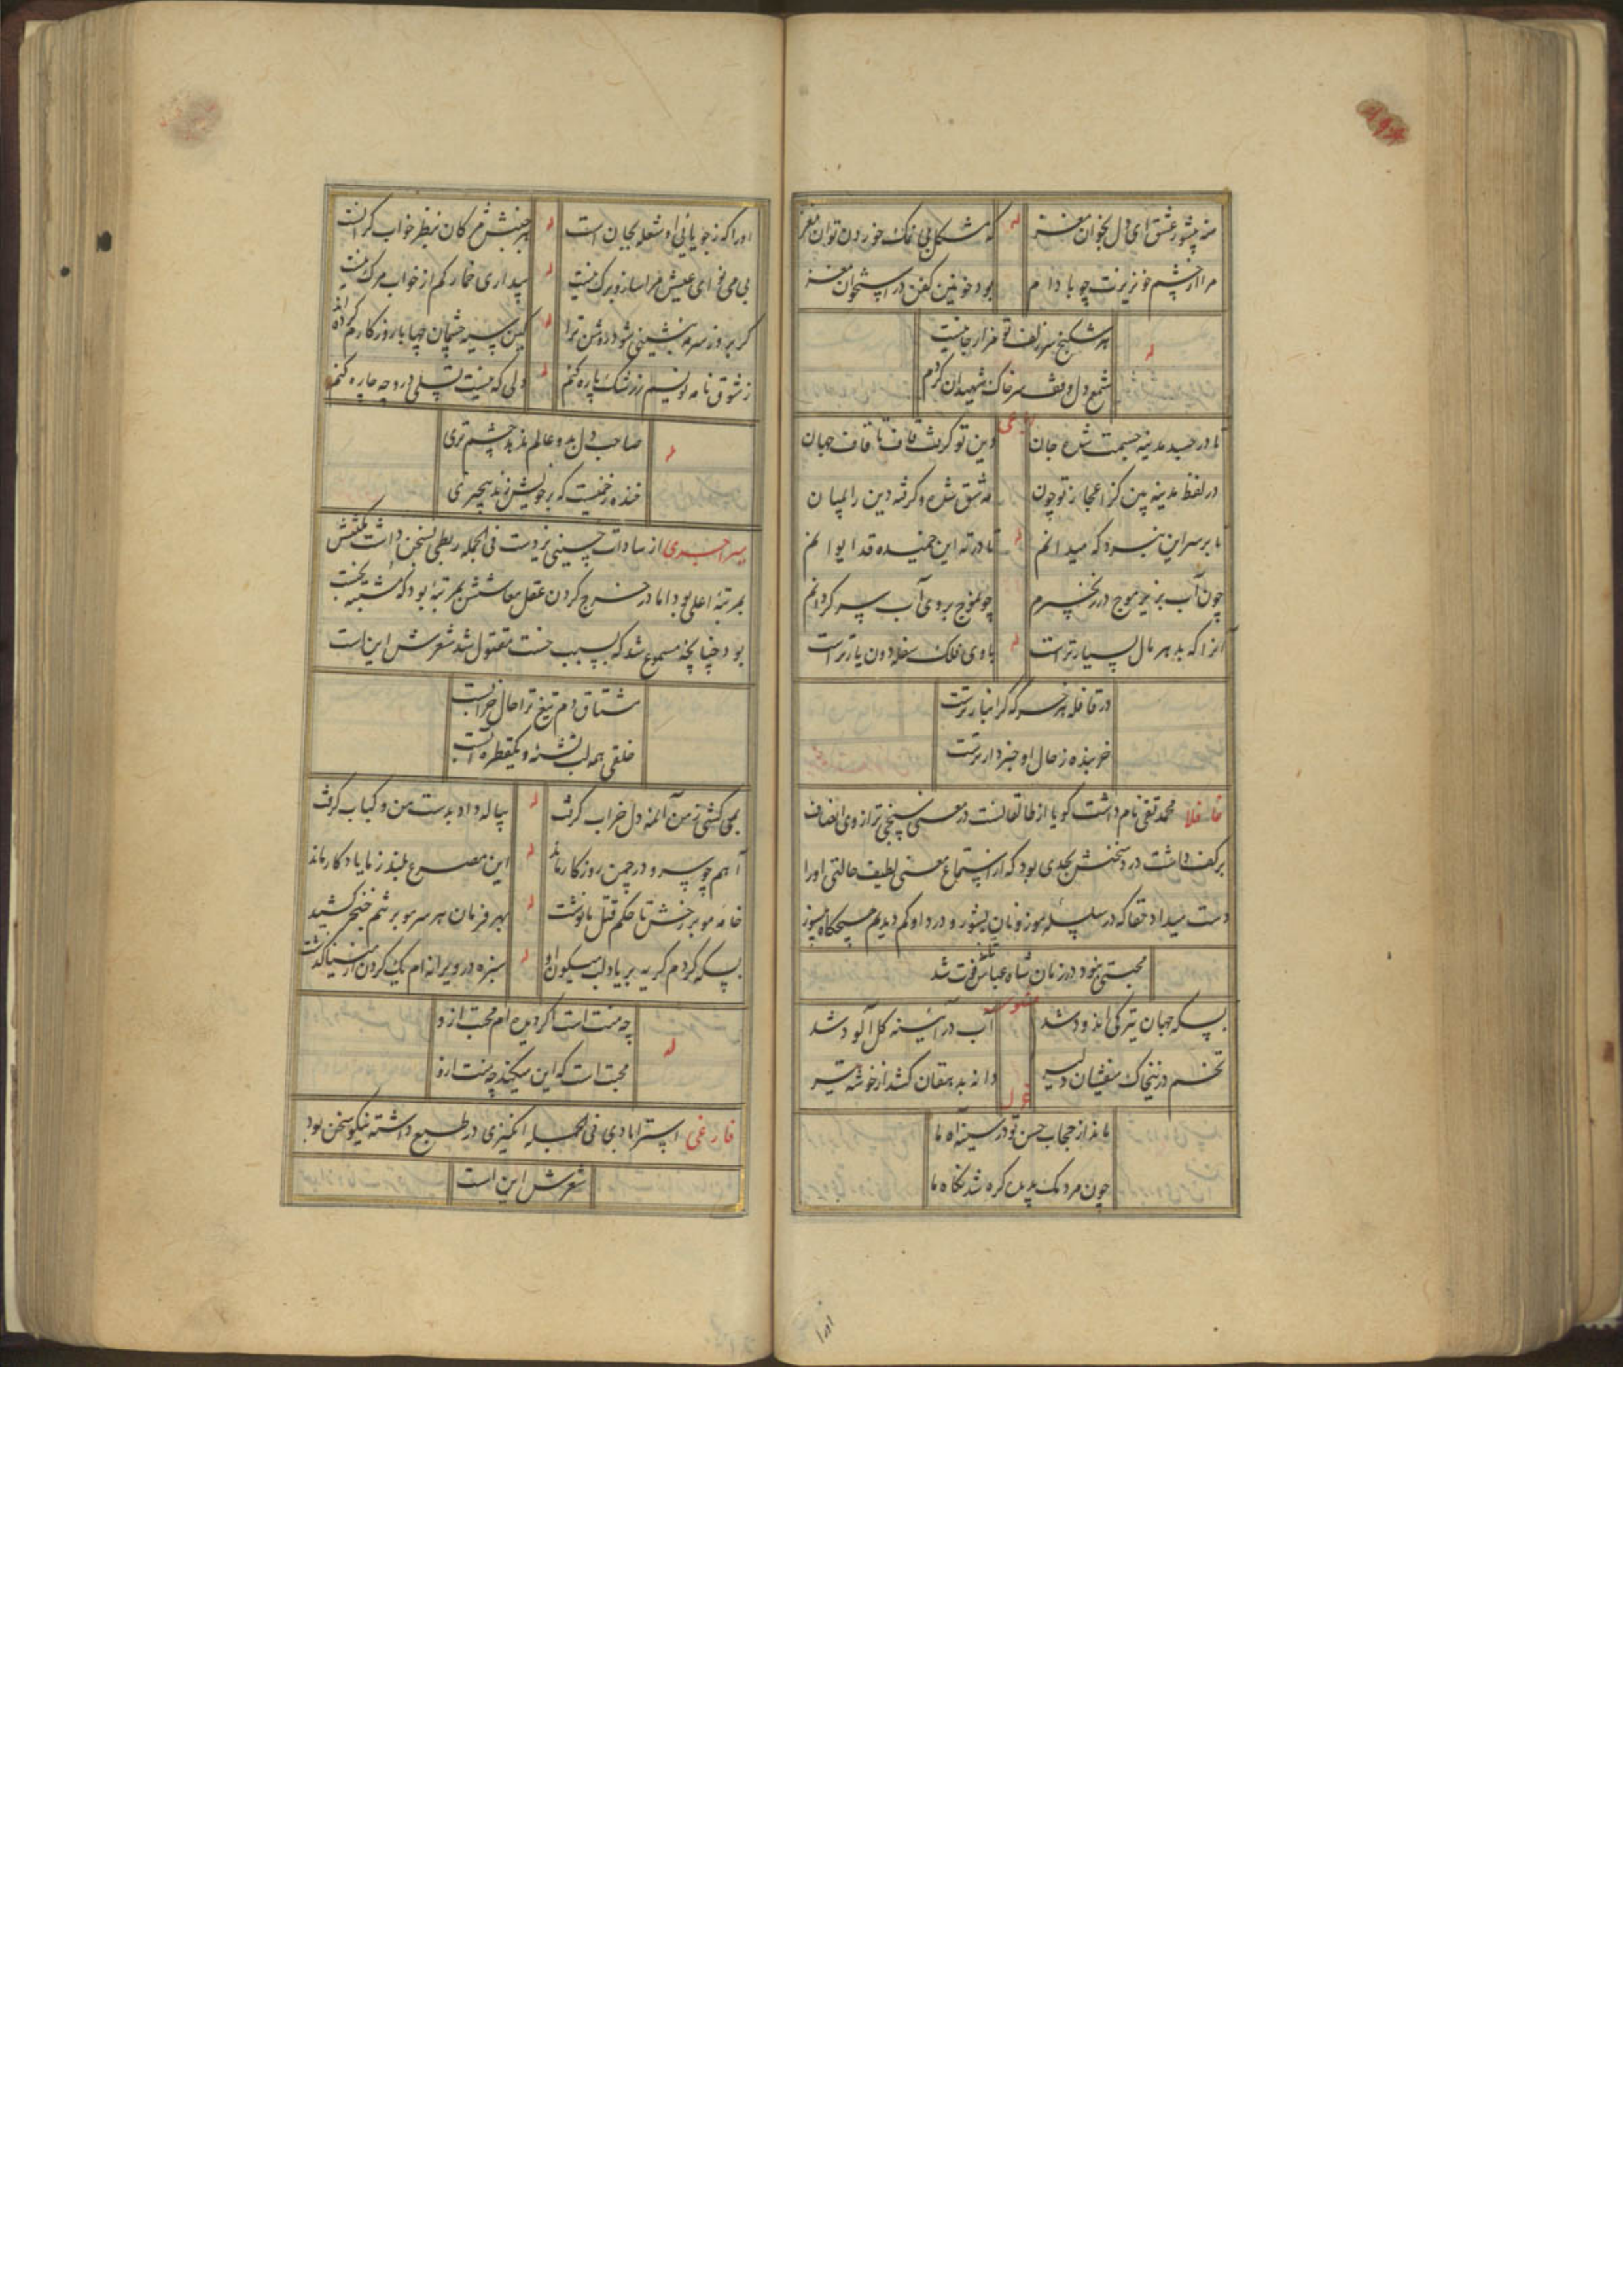 منه بشور عشق ای دل بخوان مغز
له
که مشکل بی نمک خوردن توان مغز
مرا از چشم خونریزت چو بادام
بود خونین کفن در استخوان مغز
له
هر شکنج سر زلف تو مزار جانیست
شمع دل وقف سر خاک شهیدان کردم
تا در جسد مدینه جسمت شده جان
دین تو گرفت قاف تا قاف جهان
در لفظ مدینه بین کز اعجاز تو چون
مه شق شده و گرفته دین را بمیان
تا بر سر این
که میدانم
له
تا در ته این خمیده قد ایوانم
چون آب بزنجیر موج در زنجیرم
چو موج بروی آب سرگردانم
آنرا که بدهر مال بسیارتر است
له
با وی فلک سفله دون یارتر است
در قافله هر خر که گرانبارترست
خربنده ز حال او خبردارترست
محمد تقی نام داشت گویا از طالقانست در معنی سنجی ترازوی انصاف
بر کف داشت درد سخنش بحدی بود که از استماع معنی لطیف حالتی او را
دست میداد حقا که در سلسله موزونان بشور و درد او کم دیدیم هیچگاه بی سوز
محبتی نبود در زمان شاه عباس فوت شد
مثنوی
بسکه جهان تیرگی اندود شد
آب در آیینه گل آلود شد
تخم در این خاک میفشان دلیر
دانه بدهقان کشد از خوشه تیر
غزل
ماند از حجاب حسن تو در سینه آه ما
چون مردمک بدیده گره شد نگاه ما
او را که ز جویایی او شعله بجان است
له
هر جنبش مژگان بنظر خواب گرانست
بی می نوای عیش مرا ساز و برگ نیست
له
بیداری خمار کم از خواب مرگ نیست
گر بروز سرمه بنشینی شود روشن ترا
له
کین سیه چشمان چها با روزگارم کرده اند
ز شوق نامه نویسم ز رشک پاره کنم
له
دلی که نیست تسلی درو چه چاره کنم
له
صاحب دل بدو عالم ندهد چشم تری
خنده زخمیست که بر خویش زند بیخبری
از سادات حسینی یزدست فی الجمله ربطی بسخن داشت مکنتش
بمرتبه اعلی بود اما در خرج کردن عقل معاشش بمرتبه بود که مشتبه بخست
بود چنانچه مسموع شد که بسبب خست مقتول شد شعرش این است
مشتاق دم تیغ ترا حال خرابست
خلقی همه لب تشنه و یکقطره آبست
بمی کشی ز من آن مه دل خراب گرفت
له
پیاله داد بدست من و کباب گرفت
آهم چو سرو در چمن روزگار ماند
له
این مصرع بلند ز ما یادگار ماند
خامه مو بر رخش تا حکم قتل ما نوشت
له
بهر فرمان هر سر مو بر تنم خنجر کشید
بسکه کردم گریه بر یاد لب میگون او
له
سبزه در ویرانه ام یک گردن از مینا گذشت
له
چه منت است که گردیده ام محبت ازو
محبت است که این میکند چه منت ازو
فارغی استرابادی فی الجمله انگیزی در طبع داشته نیکو سخن بود
شعرش این است